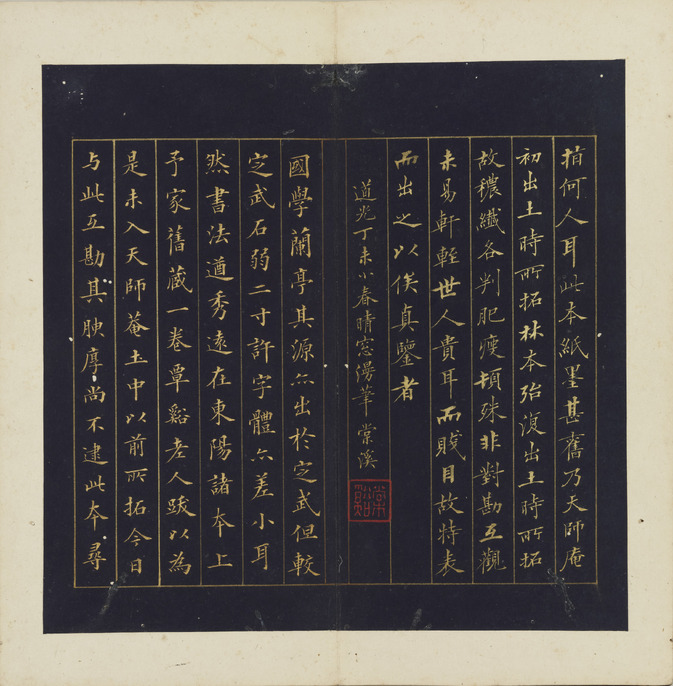 指何人耳此本紙墨甚舊乃天師庵
初出土時所拓林本殆復出土時所拓
故穠纖各判肥瘦頓殊非對勘互觀
未易軒輊世人貴耳而賤目故特表
而出之以俟真鑒者
道光丁未小春晴窓漫筆棠溪
國學蘭亭其源亦出於定武但較
定武石弱二寸許字體亦差小耳
然書法遒秀遠在東陽諸本上
予家舊藏一卷覃谿老人跋以為
是未入天師菴土中以前所拓今日
与此互勘其腴厚尚不逮此本尋